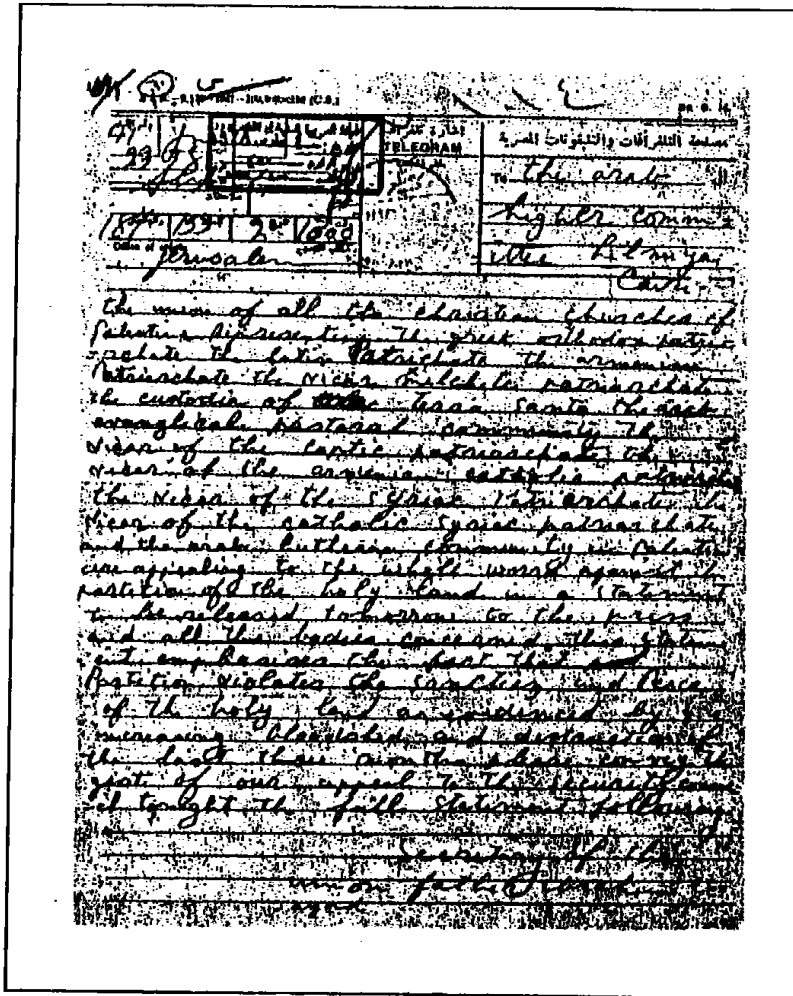 TELEGRAM
مصلحة التلغرافات والتليفونات المصرية
To the arab
higher comm=
ittee hilmiya
Cairo
187 133 2 1000
Jerusalem
the union of all the christian churches of
palestine representing the greek orthodox patri
=rchate the latin Patriarchate the armenian
Patriarchate the vicar milchite patriarchate
the custodia of terra santa the arab
evanglical pastoral community the
vicar of the coptic patriarchate the
vicar of the armenian catholic patriarchate
the vicar of the syriac Patriarchate the
vicar of the catholic syriac patriarchate
and the arab lutheran community in palestine
are appealing to the whole world against the
partition of the holy land in a statement
to be released tomorrow to the press
and all the bodies concerned this statem
ent emphasises the fact that
Partition violates the sanctity and peace
of the holy land as evidenced by the
increasing bloodshed and distruction of
the last three months please convey the
gist of our appeal to the security coun
=cil tonight the full statement following
Secretary of the
union father